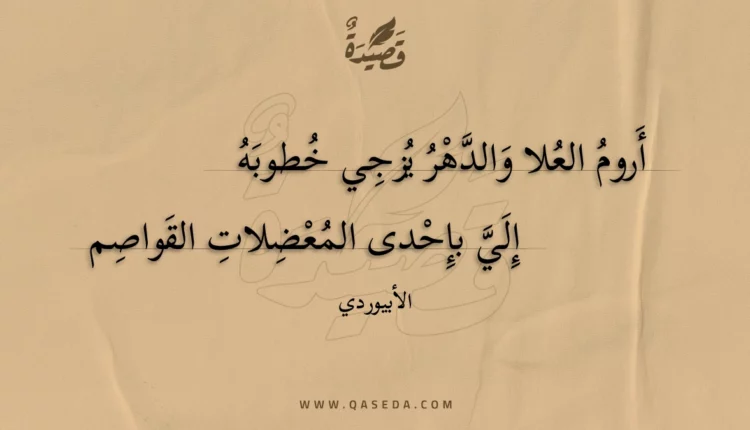 قَصِيدَةٌ
أَرومُ العُلا وَالدَّهْرُ يُزجِي خُطوبَهُ
إِلَيَّ بإِحْدى المُعْضِلاتِ القَواصِم
الأبيوردي
WWW.QASEDA.COM